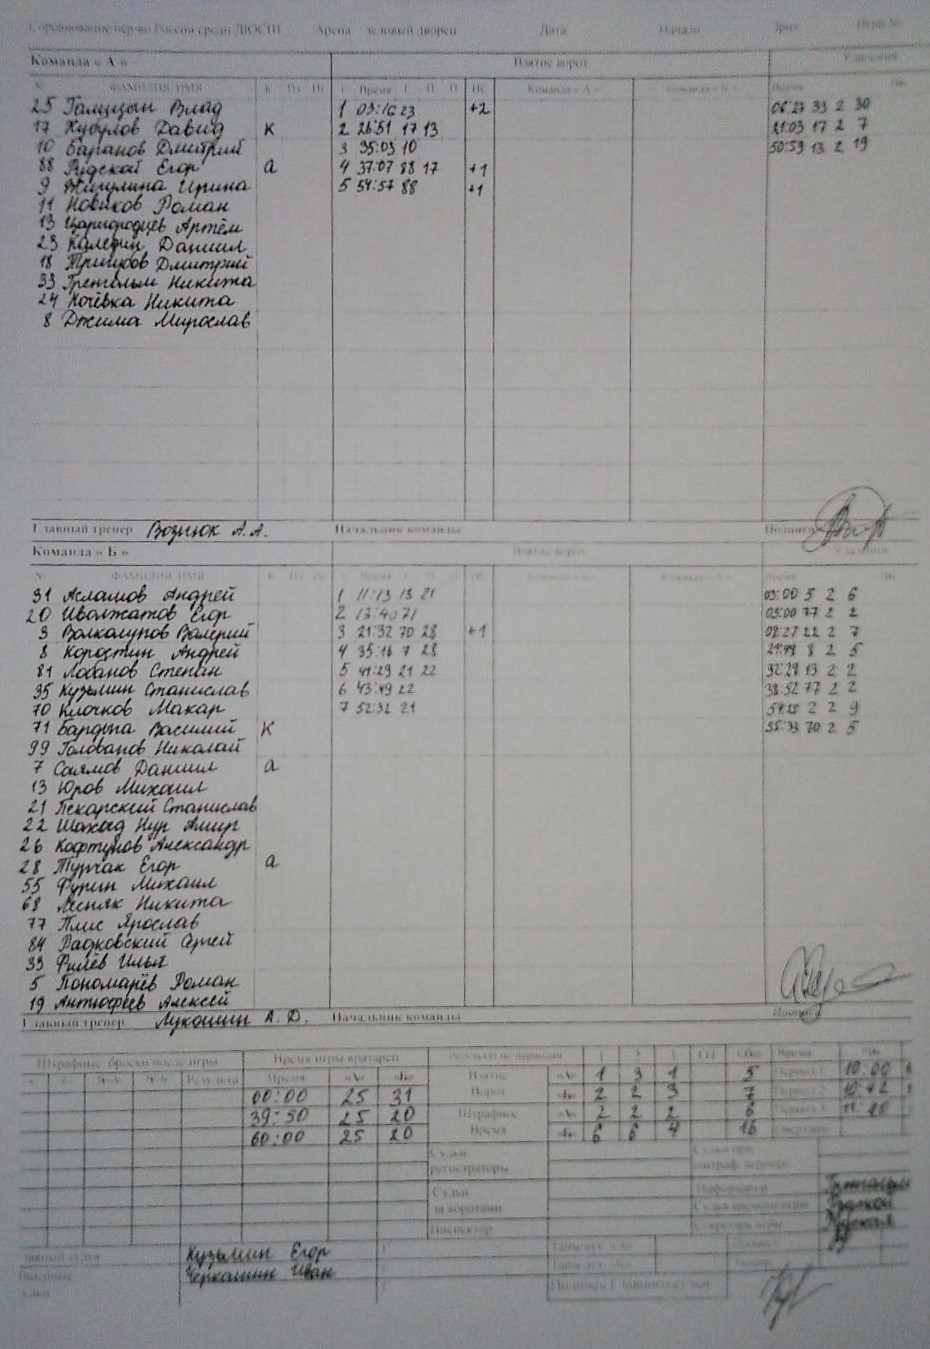 Соревнование пер-во России среди ДЮСШ Арена ледовый дворец Дата Начало Зрит. Игра №
Команда « А » Взятие ворот Удаления
№ ФАМИЛИЯ ИМЯ К Время Г П П ИС Команда « А » Команда « Б » Время
25 Галицын Влад 1 03:16 23 +2 06:27 33 2 30
17 Кубулов Давид К 2 26:51 17 13 21:03 17 2 7
10 Баранов Дмитрий 3 35:03 10 50:59 13 2 19
88 Рудской Егор А 4 37:07 88 17 +1
9 Жигулина Ирина 5 54:57 88 +1
11 Новиков Роман
13 Цариородцев Артём
23 Каледин Даниил
18 Тригубов Дмитрий
33 Никита
24 Кочевка Никита
8 Джима Мирослав
Главный тренер Возлюк А.А. Начальник команды Подпись
Команда « Б » Взятие ворот Удаления
№ ФАМИЛИЯ ИМЯ К Время Г П П ИС Команда « А » Команда « Б » Время
31 Асламов Андрей 1 11:13 13 21 03:00 5 2 6
20 Иволжатов Егор 2 13:40 71 03:00 77 2 2
3 Волкопупов Валерий 3 21:32 70 28 +1 08:27 22 2 7
8 Коростин Андрей 4 35:16 7 28 21:49 8 2 5
81 Лобанов Степан 5 41:29 21 22 32:28 13 2 2
95 Кузьмин Станислав 6 43:49 22 38:52 77 2 2
70 Клочков Макар 7 52:32 21 2 2 9
71 Бардына Василий К 55:33 70 2 5
99 Голованов Николай
7 Саямов Даниил а
13 Юров Михаил
21 Пекарский Станислав
22 Шахид Нур Амир
26 Кофтунов Александр
28 Турчак Егор а
55 Фурин Михаил
68 Лесняк Никита
77 Плис Ярослав
84 Радковский Сергей
33 Филёв Илья
5 Пономарёв Роман
19 Антюфеев Алексей
Главный тренер Лукошин А. Д. Начальник команды
Штрафные броски после игры Время игры вратарей Результат по периодам 1 2 3 ОТ Общ Время
Результа Время «А» «Б» Взятие «А» 1 3 1 5 Период 1 10.00
00:00 25 31 Ворот «Б» 2 2 3 7 Период 2 10.42
39:50 25 20 Штрафное «А» 2 2 2 6 Период 3 11.20
60:00 25 20 Время «Б» 6 6 4 16 Овертайм
Судьи регистраторы Судьи при штраф. игроках
Судьи за воротами Информатор
Судья времени игры
Инспектор Секретарь игры
Главный судья Кузьмин Егор
Линейные судьи Черкашин Иван
Подпись Главного судьи